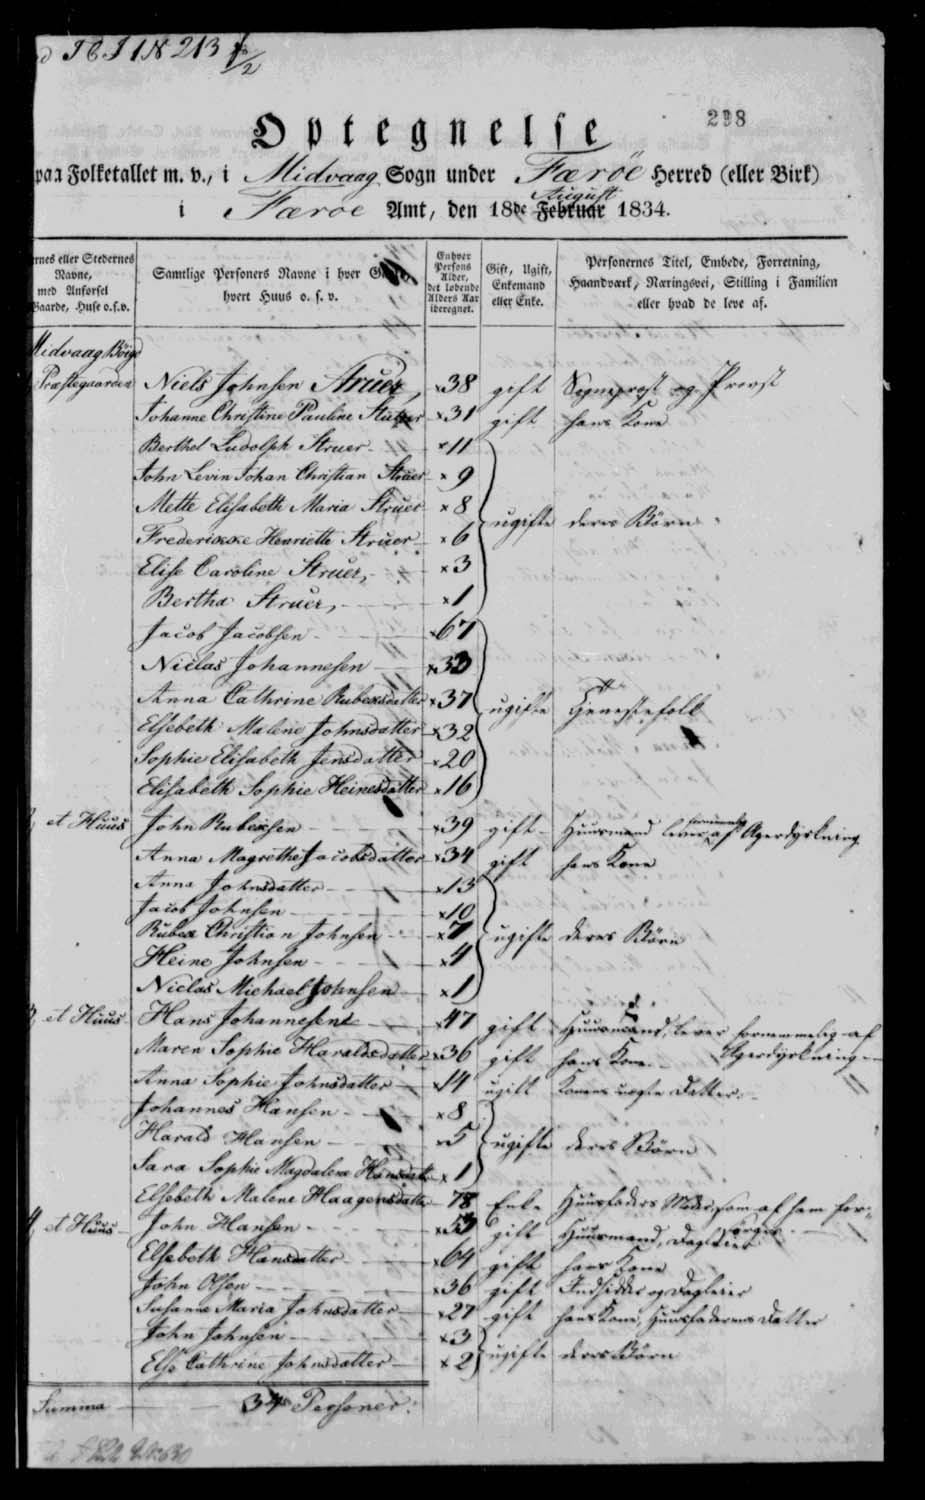 I C I 1 N 213 1/2
298
Optegnelse
paa Folketallet m. v., i Midvaag Sogn under Færöe Herred (eller Birk)
i Færöe Amt, den 18de Februar August 1834.
ernes eller Stedernes Navne, med Anførsel Gaarde, Huse o.s.v.
Samtlige Personers Navne i hver Gaard, hvert Huus o. s. v.
Enhver Persons Alder, det løbende Alders Aar iberegnet.
Gift, Ugift, Enkemand eller Enke.
Personernes Titel, Embede, Forretning, Haandværk, Næringsvei, Stilling i Familien eller hvad de leve af.
Midvaag Böigd
Præstegaarden Niels Johnsen Struer, ×38 gift Sognepræst og Provst
Johanne Christine Pauline Struer ×31 gift hans Kone
Berthel Ludolph Struer ×11
John Levin Johan Christian Struer × 9
Mette Elisabeth Maria Struer × 8 ugifte deres Börn
Frederikke Henriette Struer × 6
Elise Caroline Struer, × 3
Bertha Struer, × 1
Jacob Jacobsen ×67
Niclas Johannesen ×33
Anna Cathrine Rubeksdatter ×37 ugifte Tjenestefolk
Elsebeth Malene Johnsdatter ×32
Sophie Elisabeth Jensdatter ×20
Elisabeth Sophie Heinesdatter ×16
et Huus John Rubeksen ×39 gift Huusmand lever fornemmelig af Agerdyrkning
Anna Magrethe Jacobsdatter ×34 gift hans Kone
Anna Johnsdatter ×13
Jacob Johnsen ×10
Rubek Christian Johnsen ×7 ugifte deres Börn
Heine Johnsen ×4
Niclas Michael Johnsen ×1
3, et Huus Hans Johannesen ×47 gift Huusmand, lever fornemmelig af Agerdyrkning
Maren Sophie Haraldsdatter ×36 gift hans Kone
Anna Sophie Johnsdatter ×14 ugift Konens uægte Datter
Johannes Hansen ×8
Harald Hansen ×5 ugifte deres Börn
Sara Sophie Magdalena Hansdatter × 1
Elsebeth Malene Haagensdatter 78 Enke Huusfaders Moder, som af ham forsörges
4, et Huus John Hansen gift Huusmand, Dagleier
Elsebeth Hansdatter ×64 gift hans Kone
John Olsen ×36 gift Indsidder og Dagleier
Susanne Maria Johnsdatter ×27 gift hans Kone, Huusfaderens Datter
John Johnsen ×3
Else Cathrine Johnsdatter × 2 ugifte deres Börn
Summa 34 Personer.